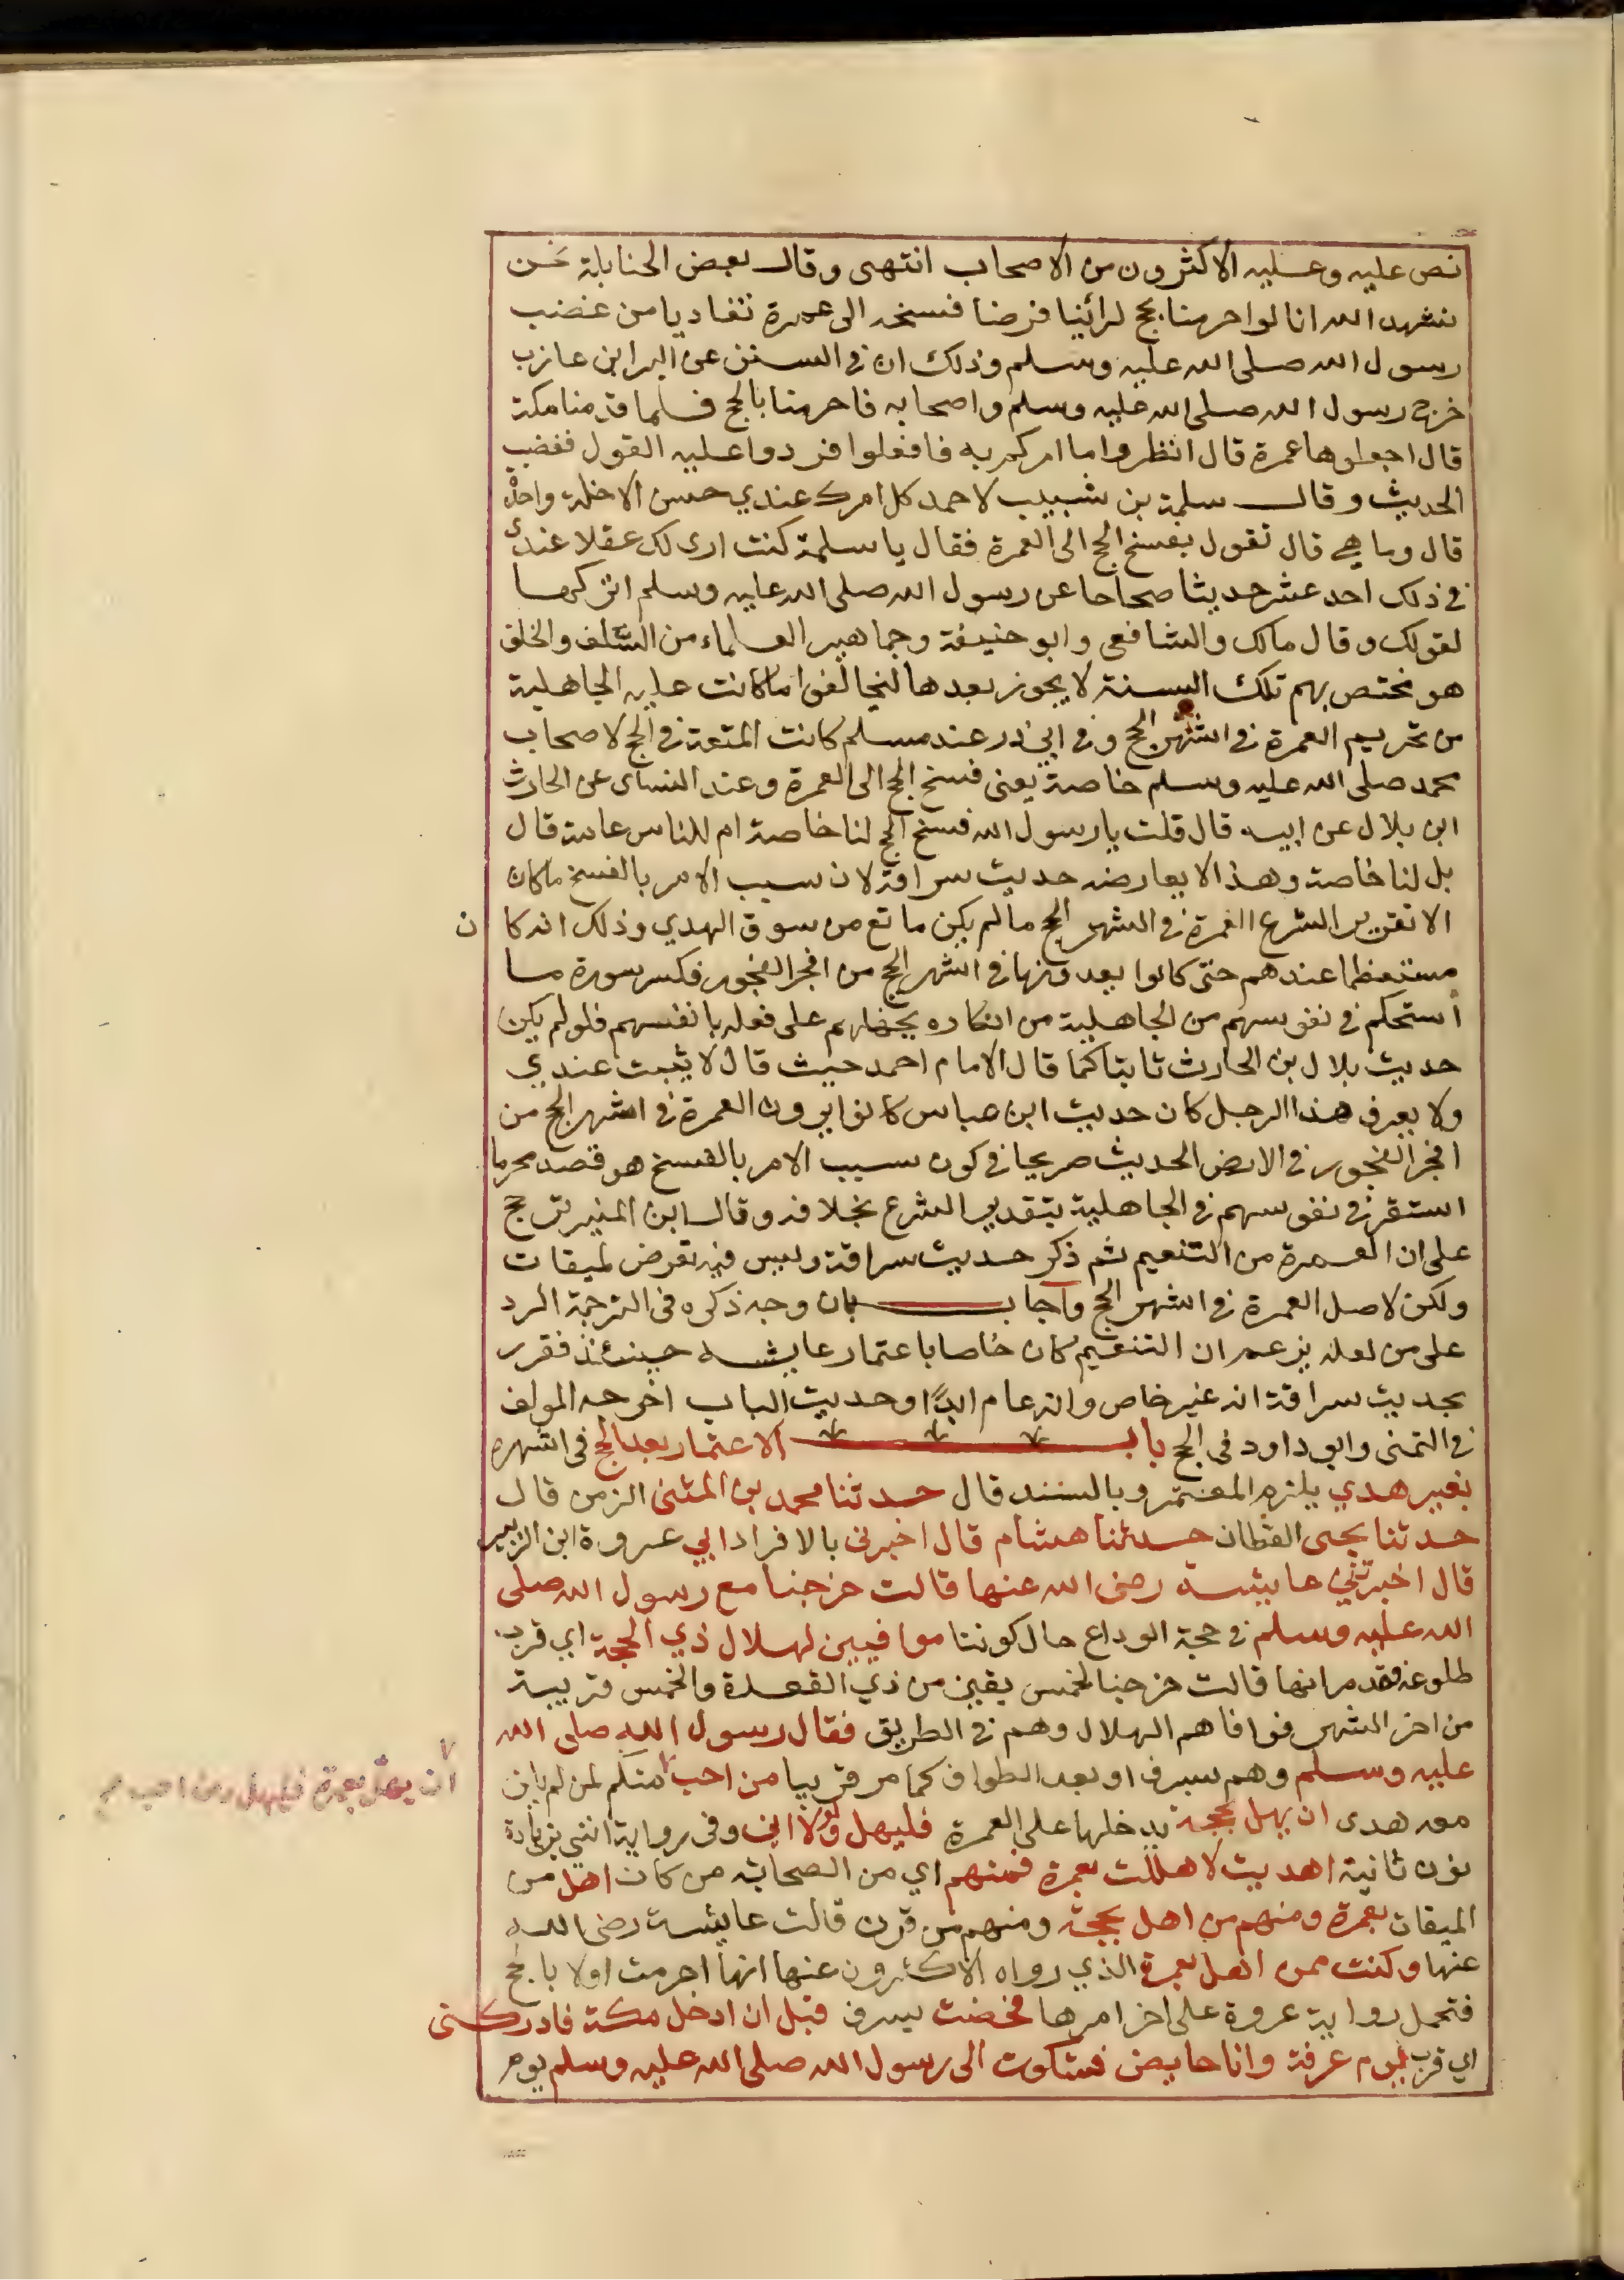 نص عليه وعليه الاكثرون من الاصحاب انتهى وقال بعض الحنابلة نحن
نشهد الله انا لو احرمنا بحج لرأينا فرضا فسخه الى عمرة تفاديا من غضب
رسول الله صلى الله عليه وسلم وذلك ان في السنن عن البرا بن عازب
خرج رسول الله صلى الله عليه وسلم واصحابه فاحرمنا بالحج فلما قدمنا مكة
قال اجعلوها عمرة قال انظروا ما امركم به فافعلوا فردوا عليه القول فغضب
الحديث وقال سلمة بن شبيب لاحمد كل امرك عندي حسن الا خلة واحدة
قال وما هي قال تقول بفسخ الحج الى العمرة فقال يا سلمة كنت ارى لك عقلا عندي
في ذلك احد عشر حديثا صحاحا عن رسول الله صلى الله عليه وسلم اتركها
لقولك وقال مالك والشافعي وابو حنيفة وجماهير العلماء من السلف والخلف
هو مختص بهم تلك السنة لا يجوز بعدها ليخالفوا ما كانت عليه الجاهلية
من تحريم العمرة في اشهر الحج وفي ابي ذر عند مسلم كانت المتعة في الحج لاصحاب
محمد صلى الله عليه وسلم خاصة يعني فسخ الحج الى العمرة وعند النساى عن الحارث
ابن بلال عن ابيه قال قلت يا رسول الله فسخ الحج لنا خاصة ام للناس عامة قال
بل لنا خاصة وهذا لا يعارضه حديث سراقة لان سبب الامر بالفسخ ما كان
الا تقرير الشرع العمرة في اشهر الحج ما لم يكن مانع من سوق الهدي وذلك انه كان
مستعظما عندهم حتى كانوا يعدونها في اشهر الحج من افجر الفجور فكسر سورة ما
استحكم في نفوسهم من الجاهلية من انكاره بحضارهم على فعله بانفسهم فلو لم يكن
حديث بلال بن الحارث ثابتا كما قال الامام احمد حيث قال لا يثبت عندي
ولا يعرف هذا الرجل كان حديث ابن عباس كانوا يرون العمرة في اشهر الحج من
افجر الفجور في الارض الحديث صريحا في كون سبب الامر بالفسخ هو قصد محو ما
استقر في نفوسهم في الجاهلية بتقدير الشرع بخلافه وقال ابن المنير ترجم
على ان العمرة من التنعيم ثم ذكر حديث سراقة وليس فيه تعرض لميقات
ولكن لاصل العمرة في اشهر الحج واجاب بان وجه ذكره في الترجمة الرد
على من لعله يزعم ان التنعيم كان خاصا باعتمار عايشه حينئذ فقرر
بحديث سراقة انه غير خاص وانه عام ابدا وحديث الباب اخرجه المولف
في التمنى وابو داود في الحج باب الاعتمار بعد الحج في اشهره
بغير هدي يلزم المعتمر وبالسند قال حدثنا محمد بن المثنى الزمن قال
حدثنا يحيى القطان حدثنا هشام قال اخبرني بالافراد ابي عروة ابن الزبير
قال اخبرتني عايشة رضى الله عنها قالت خرجنا مع رسول الله صلى
الله عليه وسلم في حجة الوداع حال كوننا موافيين لهلال ذي الحجة اي قرب
طلوعه فقد مر انها قالت خرجنا لخمس بقين من ذي القعدة والخمس قريبة
من اخر الشهر فوافاهم الهلال وهم في الطريق فقال رسول الله صلى الله
عليه وسلم وهم بسرف او بعد الطواف كما مر قريبا من احب منكم لمن لم يكن
ان يهل بعمرة فليهل ومن احب صح
معه هدى ان يهل بحجة يدخلها على العمرة فليهل ولولا اني وفي رواية انني بزيادة
نون ثانية اهديت لاهللت بعمرة فمنهم اي من الصحابة من كان اهل من
الميقات بعمرة ومنهم من اهل بحجة ومنهم من قرن قالت عايشة رضى الله
عنها وكنت ممن اهل بعمرة الذي رواه الاكثرون عنها انها احرمت اولا بالحج
فتحمل رواية عروة على اخر امرها فحضت بسرف قبل ان ادخل مكة فادركني
اي قرب يوم عرفة وانا حايض فشكوت الى رسول الله صلى الله عليه وسلم يوم